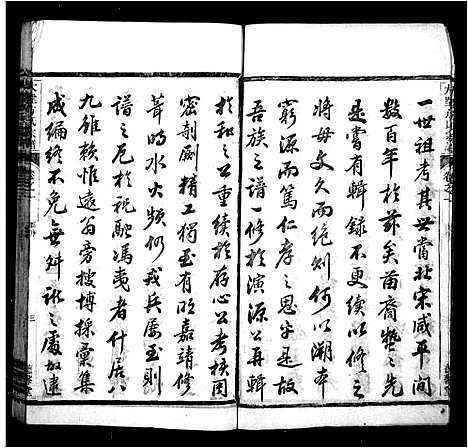 一世祖考其世當北宋咸平間
數百年於茲矣苗裔
之先
是雖有輯錄不更續以修之
將毋文久而絕則何以溯本
窮源而篤仁孝之思乎是故
吾族之譜一修於演源公再輯
於和之公重續於存心公考核周
密剞劂精工獨至有明嘉靖修
葺時水火頻仍戎兵屢至則
譜之厄於祝融馮夷者什居八
九雖賴惟遠翁旁搜博採彙集
成編終不免無舛訛之處故逮